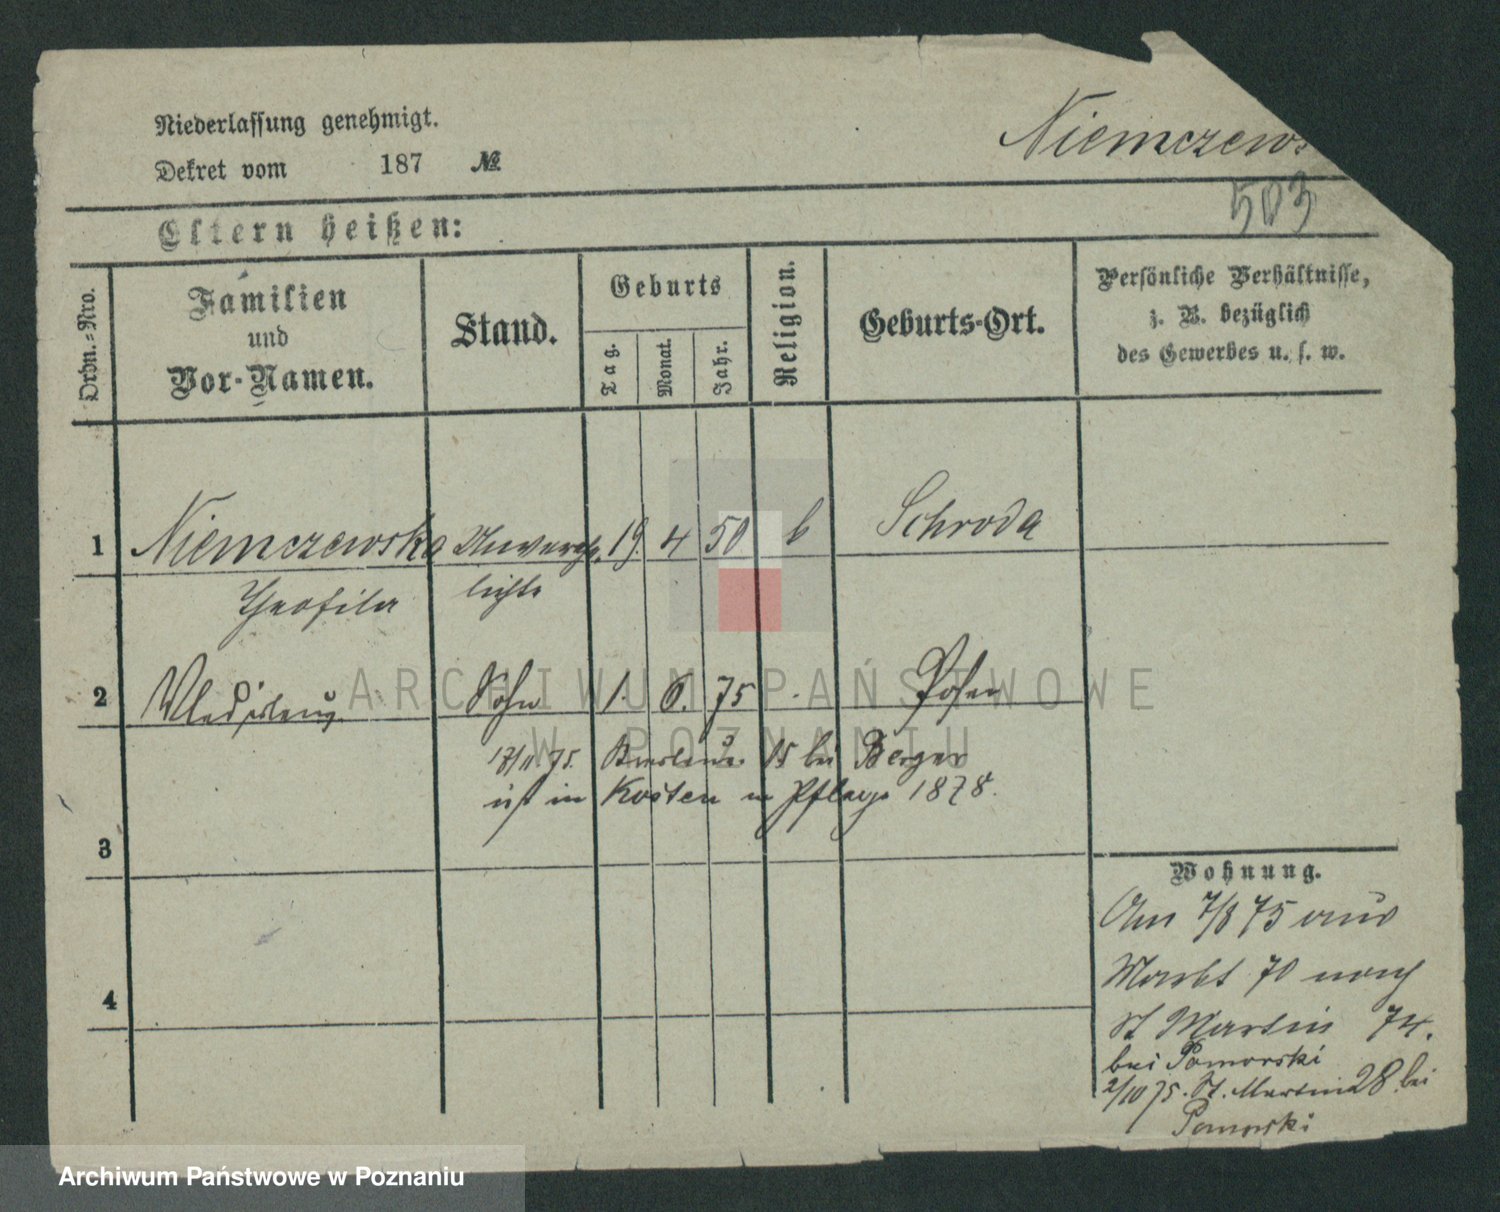 Niederlassung genehmigt.
Niemczews
Dekret vom 187 №
503
Eltern heißen:
Ordn.-Nro.
Familien
und
Vor-Namen.
Stand.
Geburts
Tag.
Monat.
Jahr.
Religion.
Geburts-Ort.
Persönliche Verhältnisse,
z. B. bezüglich
des Gewerbes u. s. w.
1 Niemczewska Unverehe 19. 4 50 k Schroda
Theofila lichte
2 Wladislaus Sohn 1. 6. 75 Posen
ARCHIWUM PAŃSTWOWE
W POZNANIU
13/11 75. 15 bei Berger
ist in Kosten in Pflege 1878.
3
Wohnung.
Am 7/8 75 aus
Markt 70 nach
St Martin 74.
bei Pomorski
2/10 75. St. Martin 28 bei
Pomorski
4
Archiwum Państwowe w Poznaniu